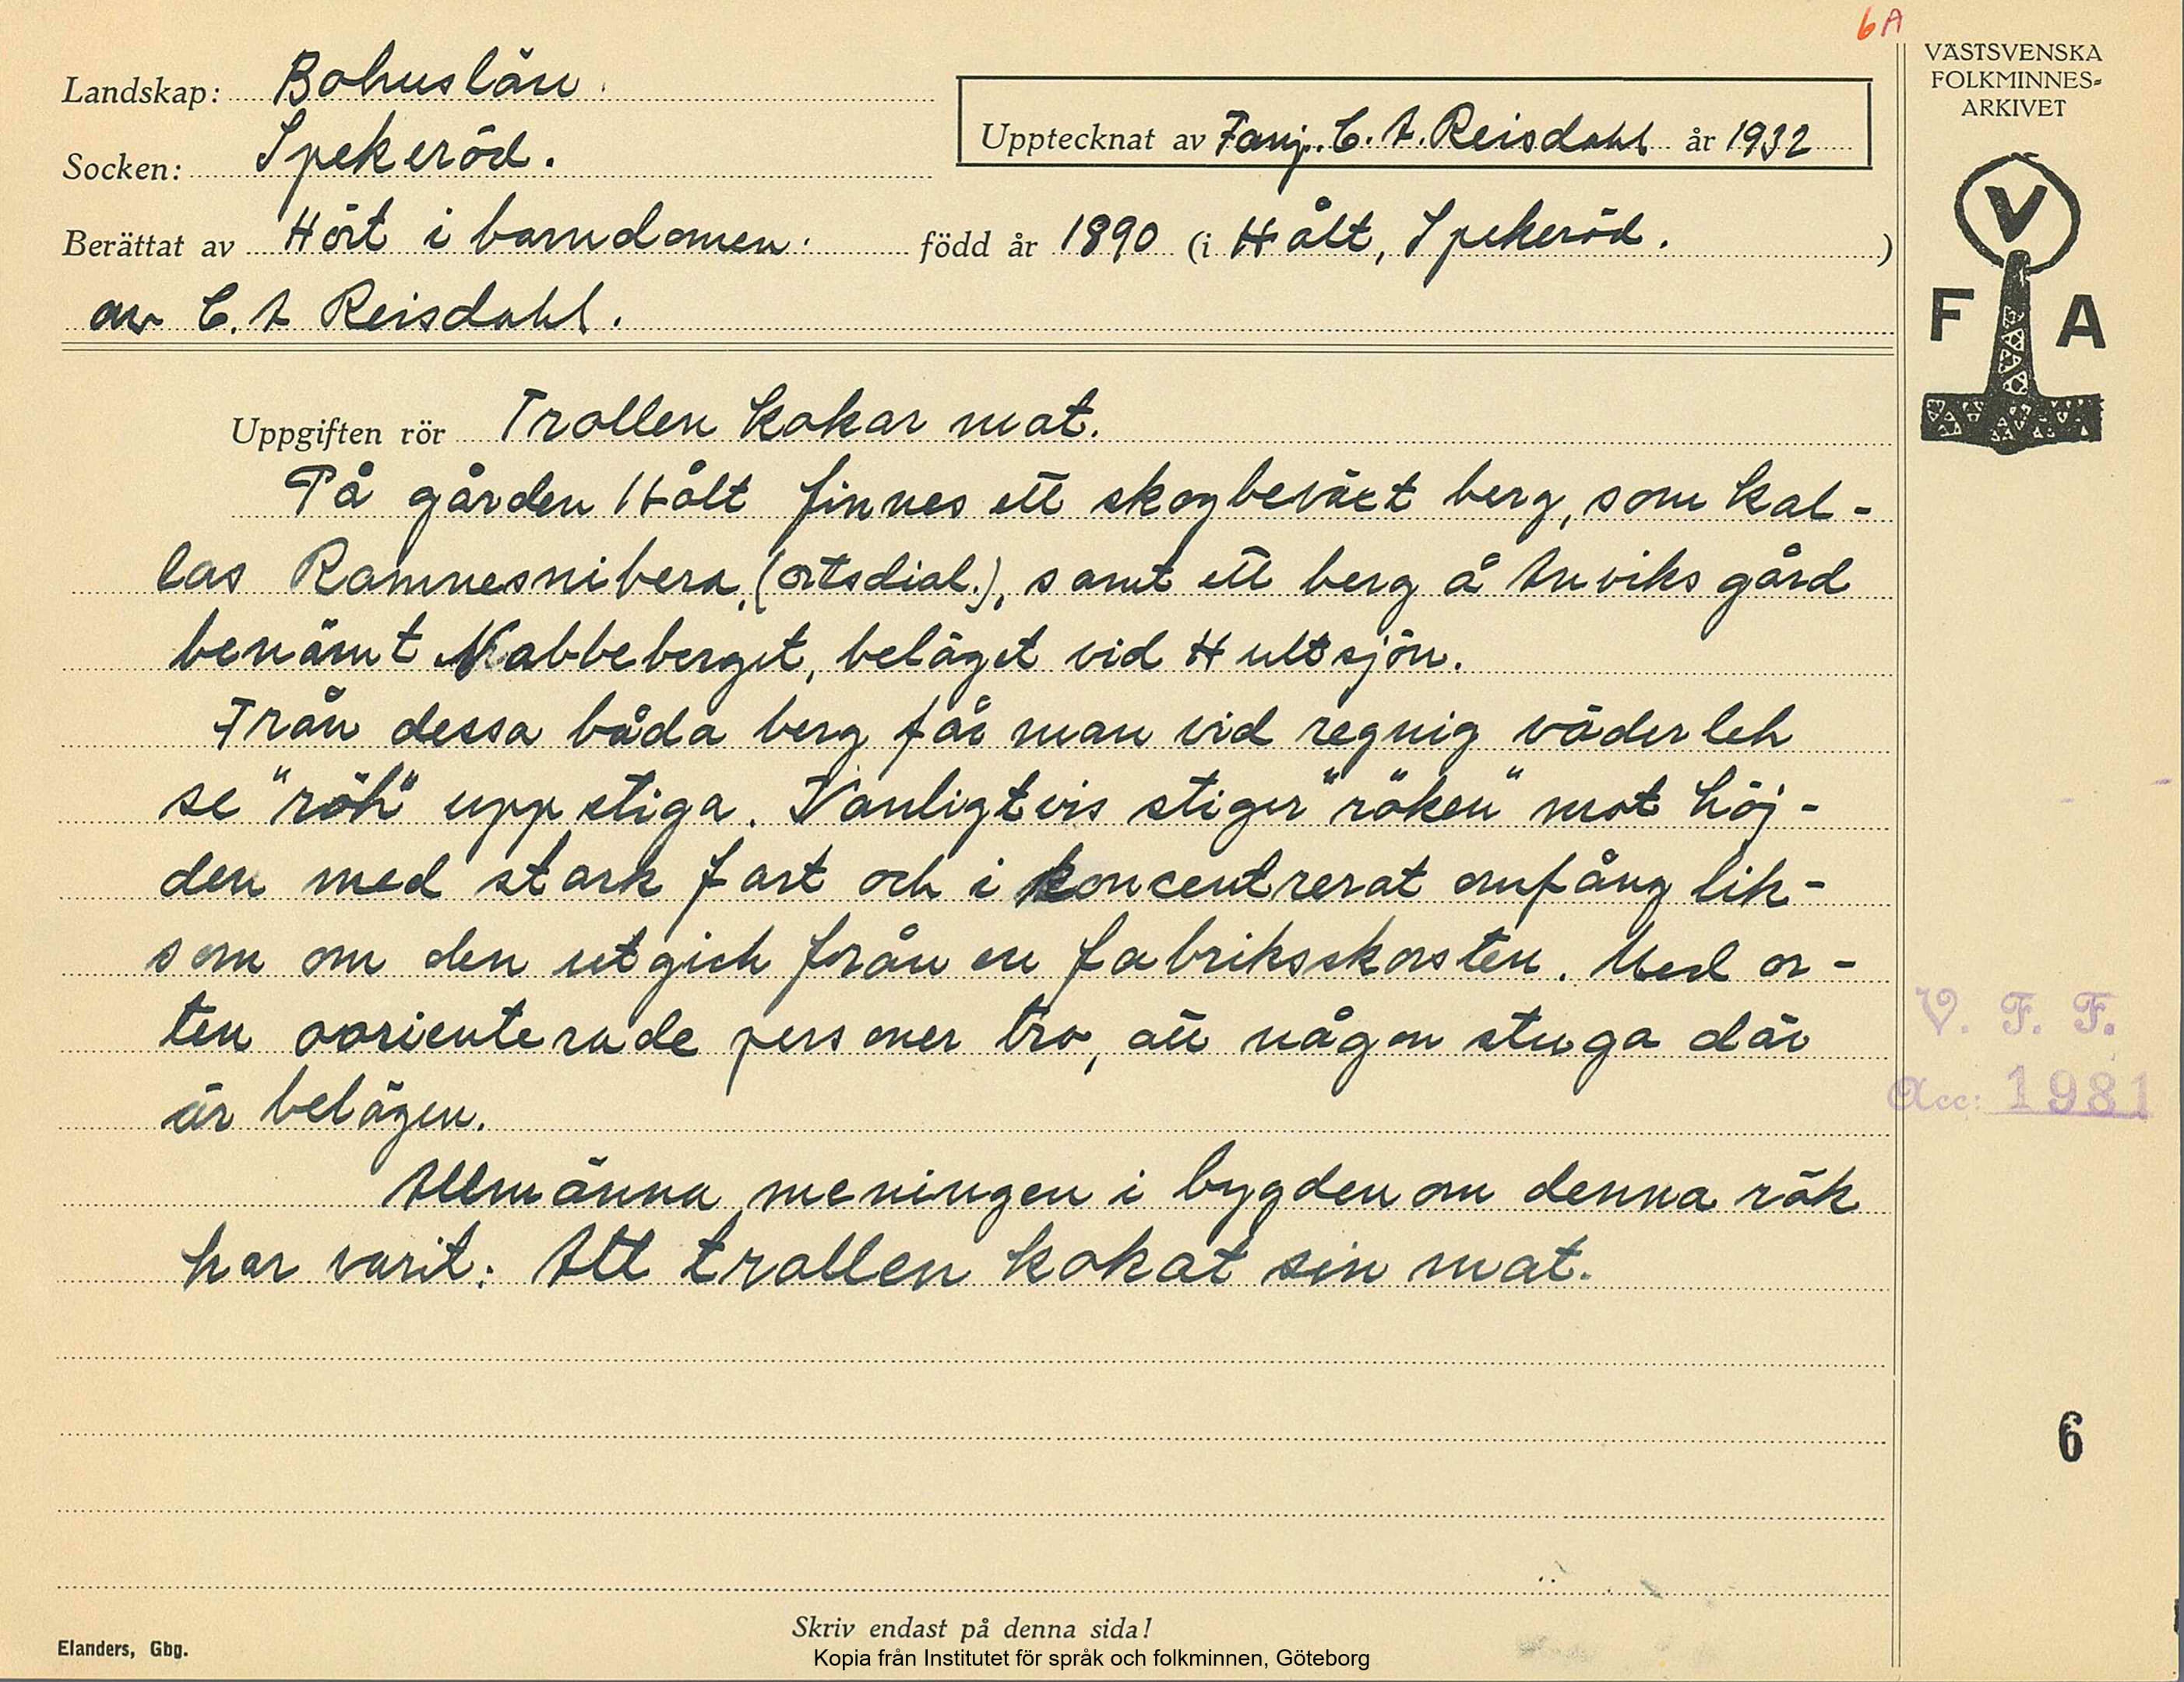 6A
Landskap: Bohuslän.
Socken: Spekeröd.
Upptecknat av Fanj. C. A. Reisdahl år 1932
Berättat av Hört i barndomen. född år 1890 (i Hålt, Spekeröd.)
av C. A Reisdahl.
VÄSTSVENSKA
FOLKMINNES-
ARKIVET
V
F A
Uppgiften rör Trollen kokar mat.
På gården Hålt finnes ett skogbeväxt berg, som kal-
las Ramnesnibera, (ortsdial.), samt ett berg å Anviks gård
benämt Nabbeberget, beläget vid Hultsjön.
Från dessa båda berg får man vid regnig väderlek
se "rök" uppstiga. Vanligtvis stiger "röken" mot höj-
den med stark fart och i koncentrerat omfång lik-
som om den utgick från en fabriksskorsten. Med or-
ten oorienterade personer tro, att någon stuga där
är belägen.
Allmänna meningen i bygden om denna rök
har varit: Att trollen kokat sin mat.
V. F. F.
Acc: 1981
6
Skriv endast på denna sida!
Elanders, Gbg.
Kopia från Institutet för språk och folkminnen, Göteborg